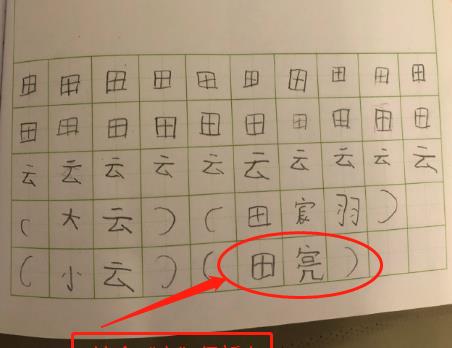 田 田 田 田 田 田 田 田 田 田
田 田 田 田 田 田 田 田 田 田
云 云 云 云 云 云 云 云 云 云
（ 大 云 ） （ 田 宸 羽 ）
（ 小 云 ） （ 田 亮 ）